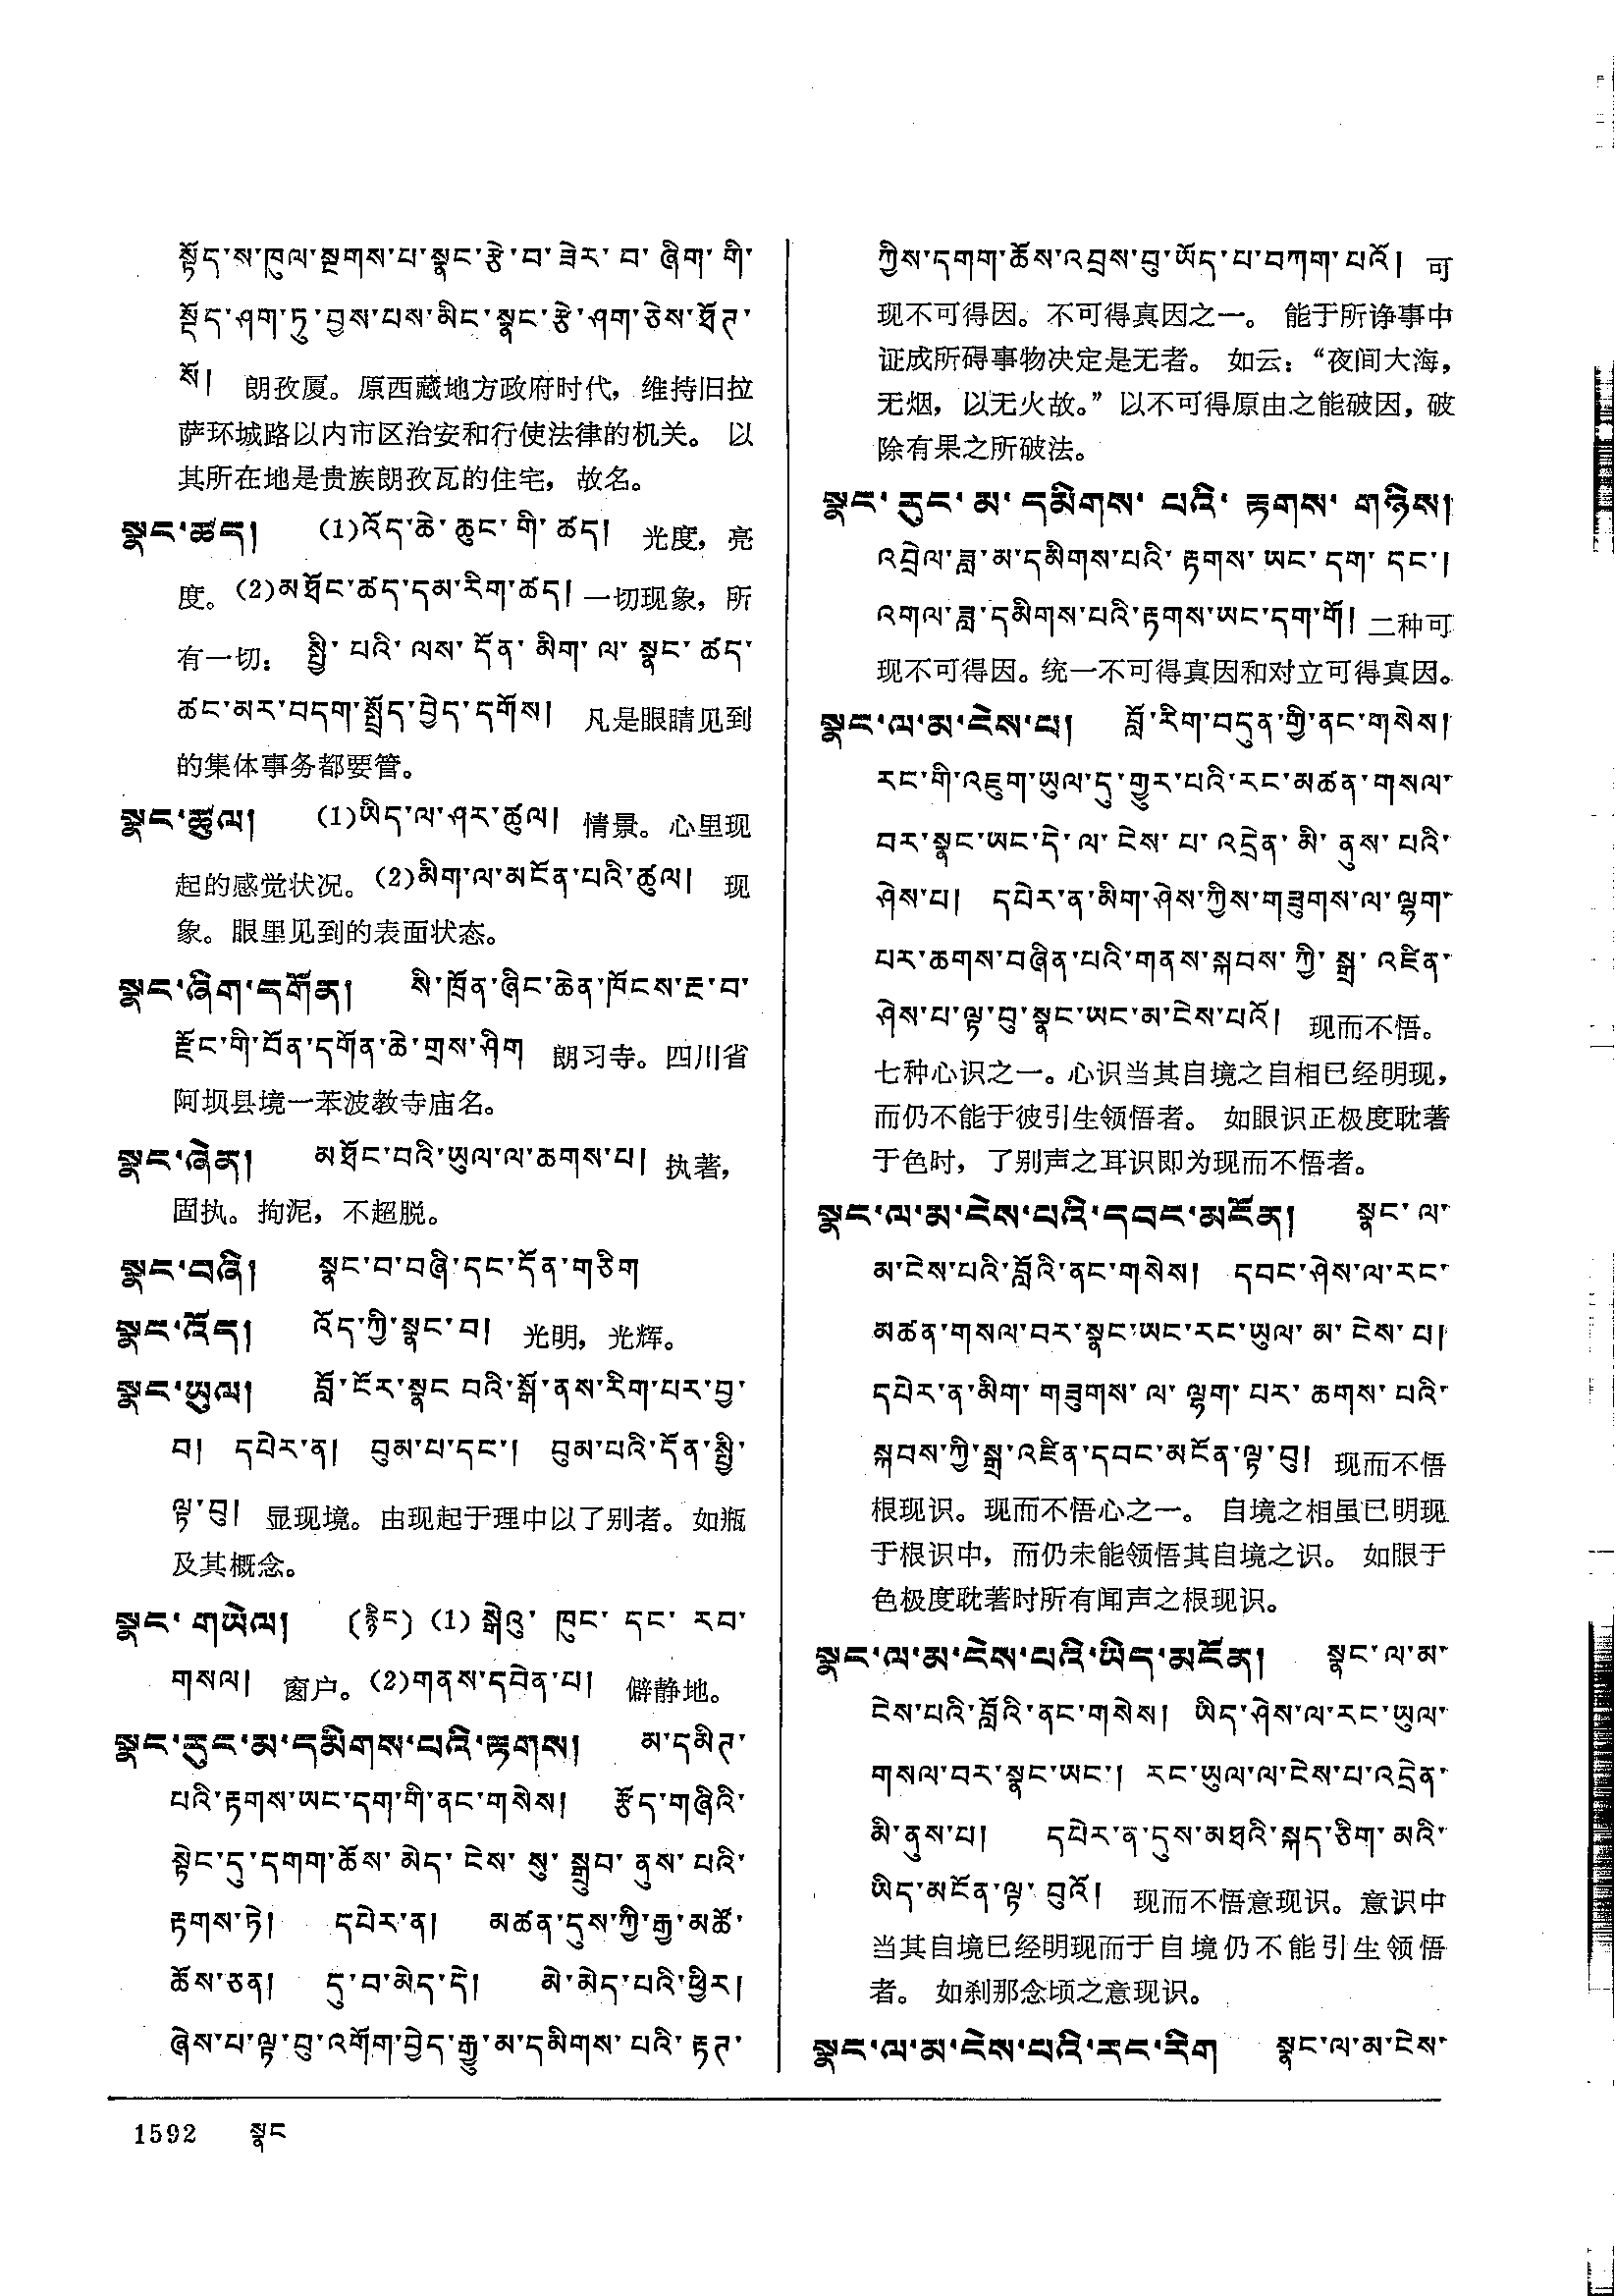 སྟོད་ས་ཁུལ་སྔགས་པ་སྣང་རྩེ་བ་ཟེར་བ་ཞིག་གི་
སྡོད་ཤག་ཏུ་བྱས་པས་མིང་སྣང་རྩེ་ཤག་ཅེས་ཐོཊ་
སོ། 朗孜厦。原西藏地方政府时代，维持旧拉
萨环城路以内市区治安和行使法律的机关。 以
其所在地是贵族朗孜瓦的住宅，故名。
སྣང་ཚད། (1)འོད་ཆེ་ཆུང་གི་ཚད། 光度，亮
度。(2)མཐོང་ཚད་དམ་རིག་ཚད། 一切现象，所
有一切： སྤྱི་པའི་ལས་དོན་མིག་ལ་སྣང་ཚད་
ཚང་མར་བདག་སྤྲོད་བྱེད་དགོས། 凡是眼睛见到
的集体事务都要管。
སྣང་ཚུལ། (1)ཡིད་ལ་ཤར་ཚུལ། 情景。心里现
起的感觉状况。(2)མིག་ལ་མངོན་པའི་ཚུལ། 现
象。眼里见到的表面状态。
སྣང་ཞིག་དགོན། སི་ཁྲོན་ཞིང་ཆེན་ཁོངས་རྔ་བ་
རྫོང་གི་བོན་དགོན་ཆེ་གྲས་ཤིག 朗习寺。四川省
阿坝县境一苯波教寺庙名。
སྣང་ཞེན། མཐོང་བའི་ཡུལ་ལ་ཆགས་པ། 执著，
固执。拘泥，不超脱。
སྣང་བཞི། སྣང་བ་བཞི་དང་དོན་གཅིག
སྣང་འོད། འོད་ཀྱི་སྣང་བ། 光明，光辉。
སྣང་ཡུལ། བློ་ངོར་སྣང་བའི་སྒོ་ནས་རིག་པར་བྱ་
བ། དཔེར་ན། བུམ་པ་དང་། བུམ་པའི་དོན་སྤྱི་
ལྟ་བུ། 显现境。由现起于理中以了别者。如瓶
及其概念。
སྣང་གཡེལ། (རྙིང) (1) སྒེའུ་ཁུང་དང་རབ་
གསལ། 窗户。(2)གནས་དབེན་པ། 僻静地。
སྣང་རུང་མ་དམིགས་པའི་རྟགས། མ་དམིཊ་
པའི་རྟགས་ཡང་དག་གི་ནང་གསེས། རྩོད་གཞིའི་
སྟེང་དུ་དགག་ཆོས་མེད་ངེས་སུ་སྒྲུབ་ནུས་པའི་
རྟགས་ཏེ། དཔེར་ན། མཚན་དུས་ཀྱི་རྒྱ་མཚོ་
ཆོས་ཅན། དུ་བ་མེད་དེ། མེ་མེད་པའི་ཕྱིར།
ཞེས་པ་ལྟ་བུ་འགོག་བྱེད་རྒྱུ་མ་དམིགས་པའི་རྟཊ་
ཀྱིས་དགག་ཆོས་འབྲས་བུ་ཡོད་པ་བཀག་པའོ། 可
现不可得因。不可得真因之一。 能于所诤事中
证成所碍事物决定是无者。 如云：“夜间大海，
无烟，以无火故。”以不可得原由之能破因，破
除有果之所破法。
སྣང་རུང་མ་དམིགས་པའི་རྟགས་གཉིས།
འབྲེལ་ཟླ་མ་དམིགས་པའི་རྟགས་ཡང་དག་དང་།
འགལ་ཟླ་དམིགས་པའི་རྟགས་ཡང་དག་གོ། 二种可
现不可得因。统一不可得真因和对立可得真因。
སྣང་ལ་མ་ངེས་པ། བློ་རིག་བདུན་གྱི་ནང་གསེས།
རང་གི་འཇུག་ཡུལ་དུ་གྱུར་པའི་རང་མཚན་གསལ་
བར་སྣང་ཡང་དེ་ལ་ངེས་པ་འདྲེན་མི་ནུས་པའི་
ཤེས་པ། དཔེར་ན་མིག་ཤེས་ཀྱིས་གཟུགས་ལ་ལྷག་
པར་ཆགས་བཞིན་པའི་གནས་སྐབས་ཀྱི་སྒྲ་འཛིན་
ཤེས་པ་ལྟ་བུ་སྣང་ཡང་མ་ངེས་པའོ། 现而不悟。
七种心识之一。心识当其自境之自相已经明现，
而仍不能于彼引生领悟者。 如眼识正极度耽著
于色时，了别声之耳识即为现而不悟者。
སྣང་ལ་མ་ངེས་པའི་དབང་མངོན། སྣང་ལ་
མ་ངེས་པའི་བློའི་ནང་གསེས། དབང་ཤེས་ལ་རང་
མཚན་གསལ་བར་སྣང་ཡང་རང་ཡུལ་མ་ངེས་པ།
དཔེར་ན་མིག་གཟུགས་ལ་ལྷག་པར་ཆགས་པའི་
སྐབས་ཀྱི་སྒྲ་འཛིན་དབང་མངོན་ལྟ་བུ། 现而不悟
根现识。现而不悟心之一。 自境之相虽已明现
于根识中，而仍未能领悟其自境之识。 如眼于
色极度耽著时所有闻声之根现识。
སྣང་ལ་མ་ངེས་པའི་ཡིད་མངོན། སྣང་ལ་མ་
ངེས་པའི་བློའི་ནང་གསེས། ཡིད་ཤེས་ལ་རང་ཡུལ་
གསལ་བར་སྣང་ཡང་། རང་ཡུལ་ལ་ངེས་པ་འདྲེན་
མི་ནུས་པ། དཔེར་ན་དུས་མཐའི་སྐད་ཅིག་མའི་
ཡིད་མངོན་ལྟ་བུའོ། 现而不悟意现识。意识中
当其自境已经明现而于自境仍不能引生领悟
者。 如刹那念顷之意现识。
སྣང་ལ་མ་ངེས་པའི་རང་རིག སྣང་ལ་མ་ངེས་
1592 སྣང